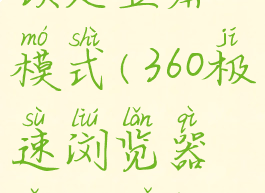 mó shì jí
模式(360极
sù liú lǎn qì
速浏览器